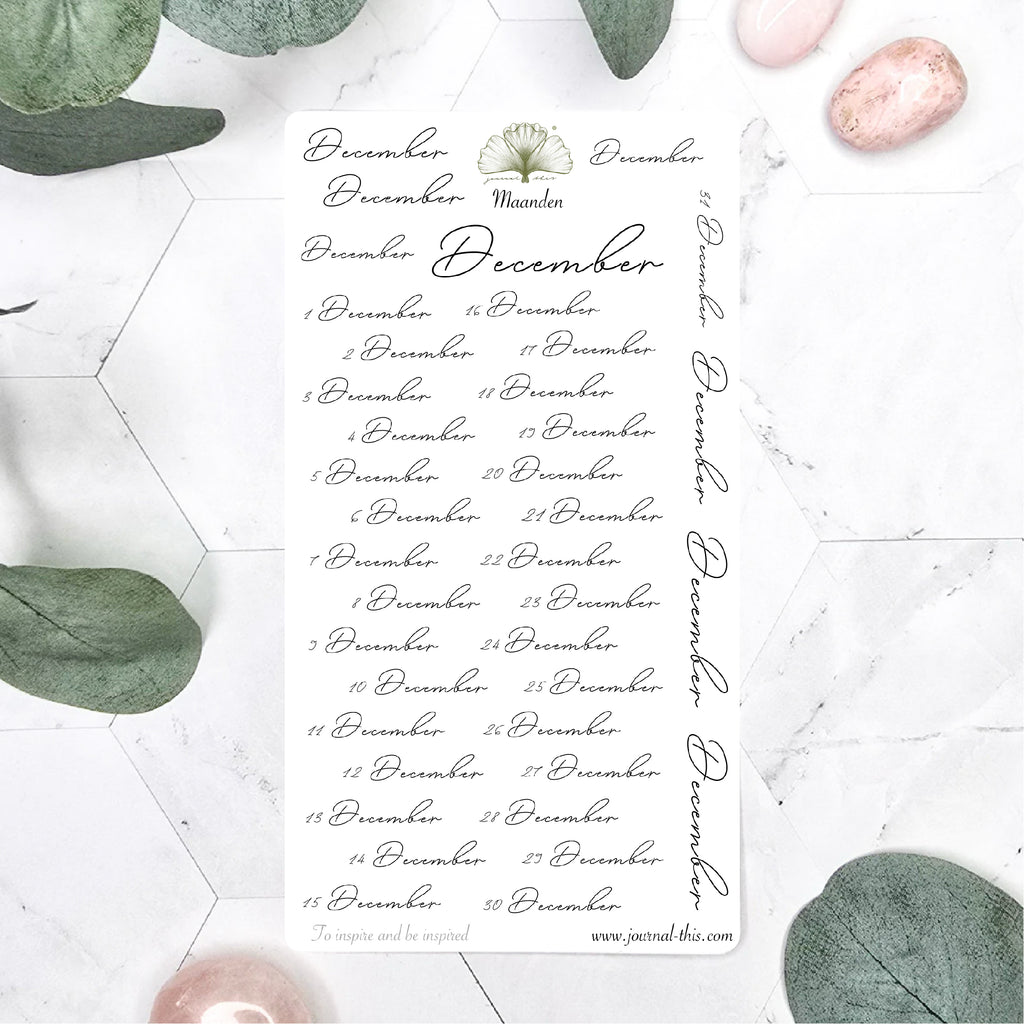 December
journal this
December
December
Maanden
December
December
1 December
16 December
2 December
17 December
3 December
18 December
4 December
19 December
5 December
20 December
6 December
21 December
7 December
22 December
8 December
23 December
9 December
24 December
10 December
25 December
11 December
26 December
12 December
27 December
13 December
28 December
14 December
29 December
15 December
30 December
31 December
December
December
December
To inspire and be inspired
www.journal-this.com